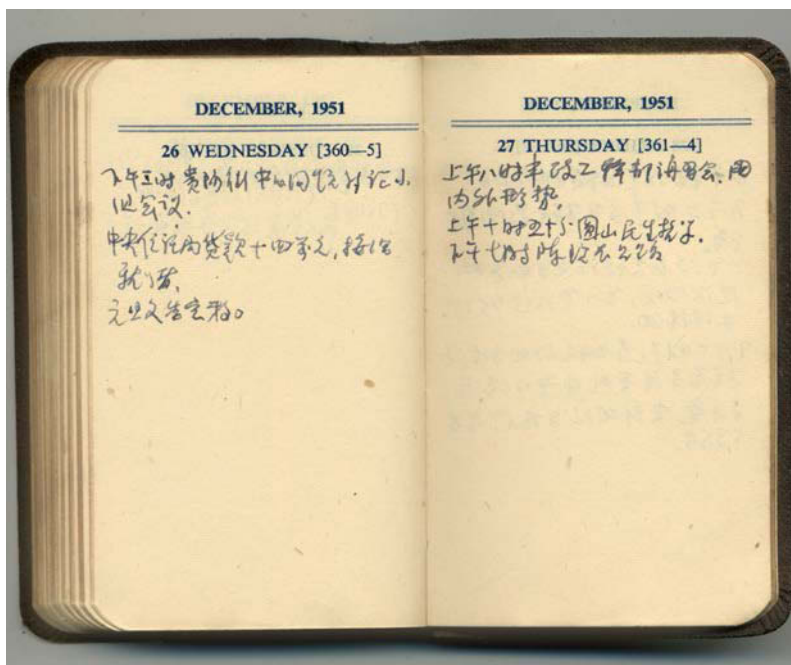 DECEMBER, 1951
26 WEDNESDAY [360—5]
下午三时贵阳街中心问题讨论小
组会议.
中央信托局贷款十四万元,
元旦文告定稿。
DECEMBER, 1951
27 THURSDAY [361—4]
上午八时半政工干部讲习会.国
内外形势.
上午十时五十分圆山
下午七时陈